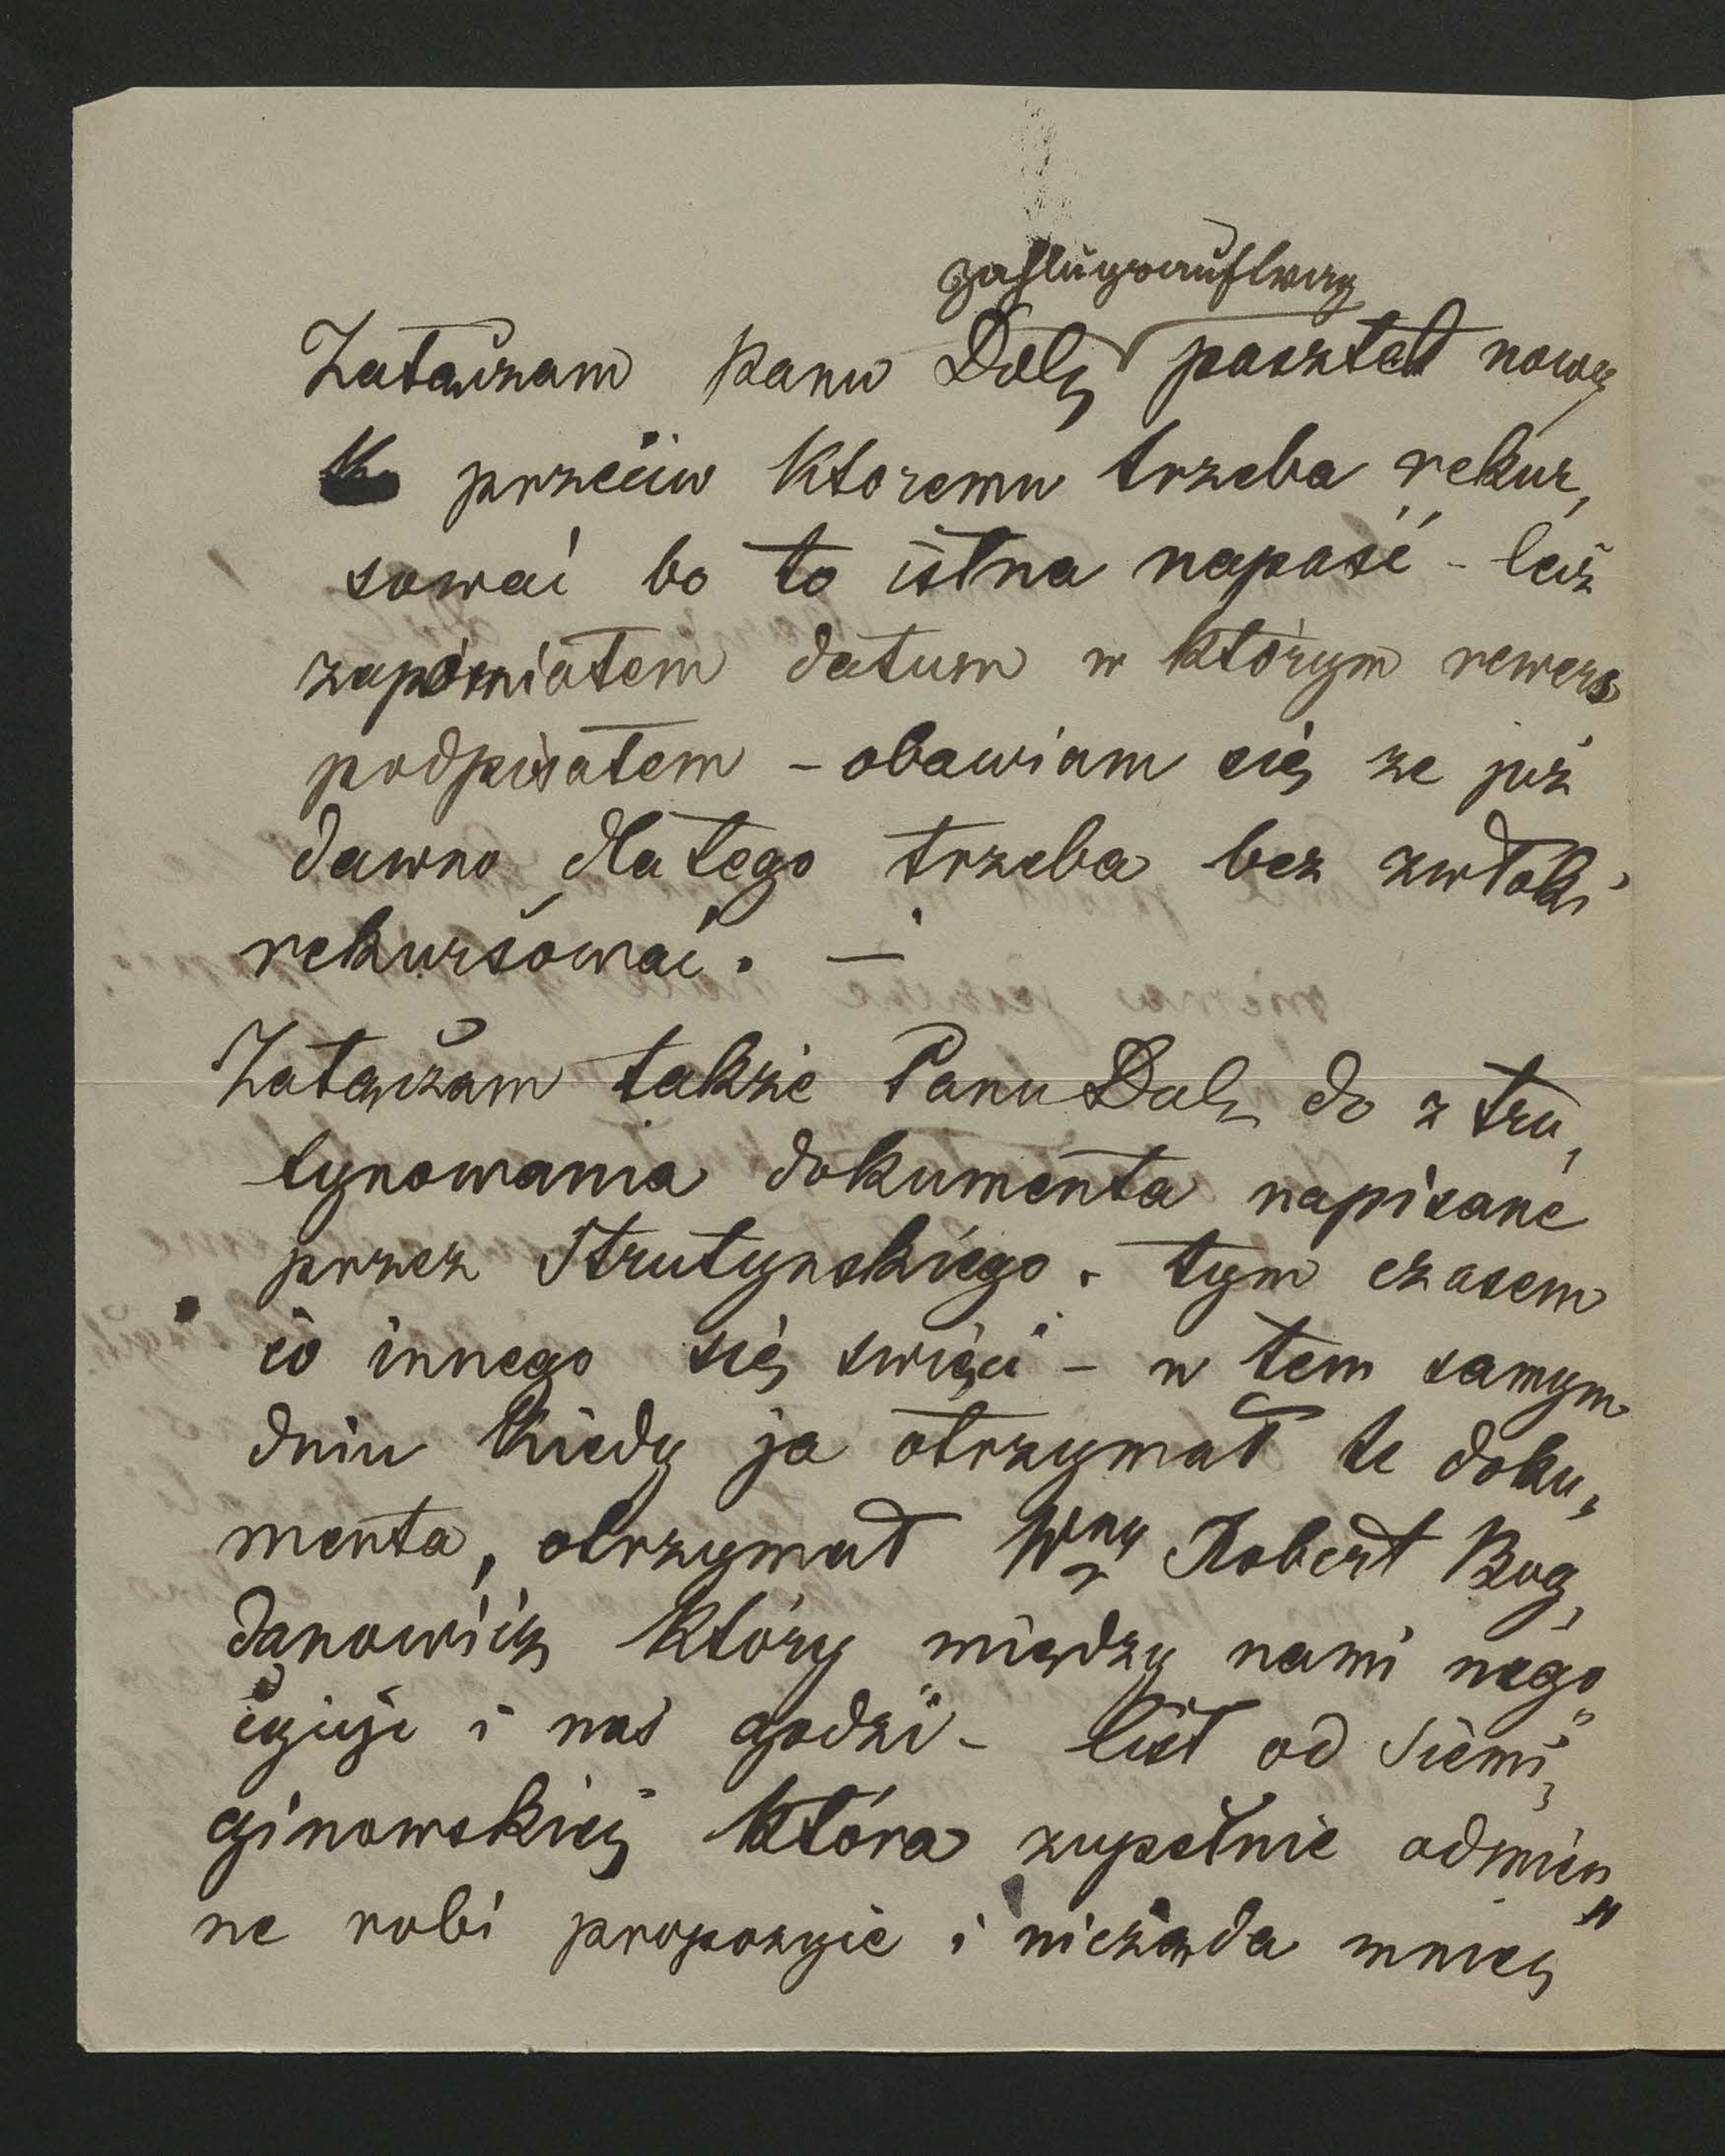 zahlungsauftrag
Załaczam panu Dolę pasztet nowy
przeciw ktoremu trzeba rekur,
sować bo to istna napaść - lecz
zapomiałem datum w którym rewers
podpisałem - obawiam się że już
dawno dlatego trzeba bez zwłoki
rekursować. —
Załączam także Panu Dolę do ztru,
tynowania dokumenta napisane
przez Strutynskiego. tym czasem
co innego się święci - w tem samym
dniu kiedy ja otrzymał te doku,
menta, otrzymał Wny Robert Bog,
danowicz który między nami nego
cyuje i nas godzi - list od Siemi,
ginowskiej która zupełnie odmien
ne robi propozycie i nieżąda mniej